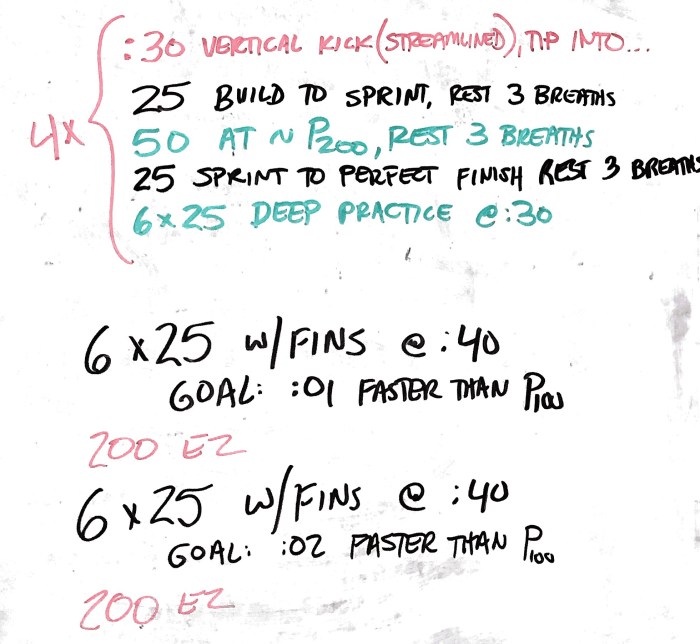 4x
:30 VERTICAL KICK (STREAMLINED), TIP INTO...
25 BUILD TO SPRINT, REST 3 BREATHS
50 AT ~ P200, REST 3 BREATHS
25 SPRINT TO PERFECT FINISH REST 3 BREATHS
6x25 DEEP PRACTICE @:30
6x25 w/FINS @ :40
GOAL: :01 FASTER THAN P100
200 EZ
6x25 w/FINS @ :40
GOAL: :02 FASTER THAN P100
200 EZ